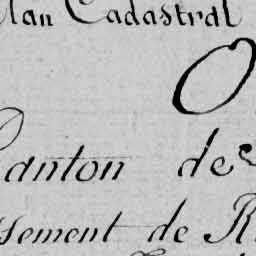 lan Cadastral
O
Canton de
ssement de R